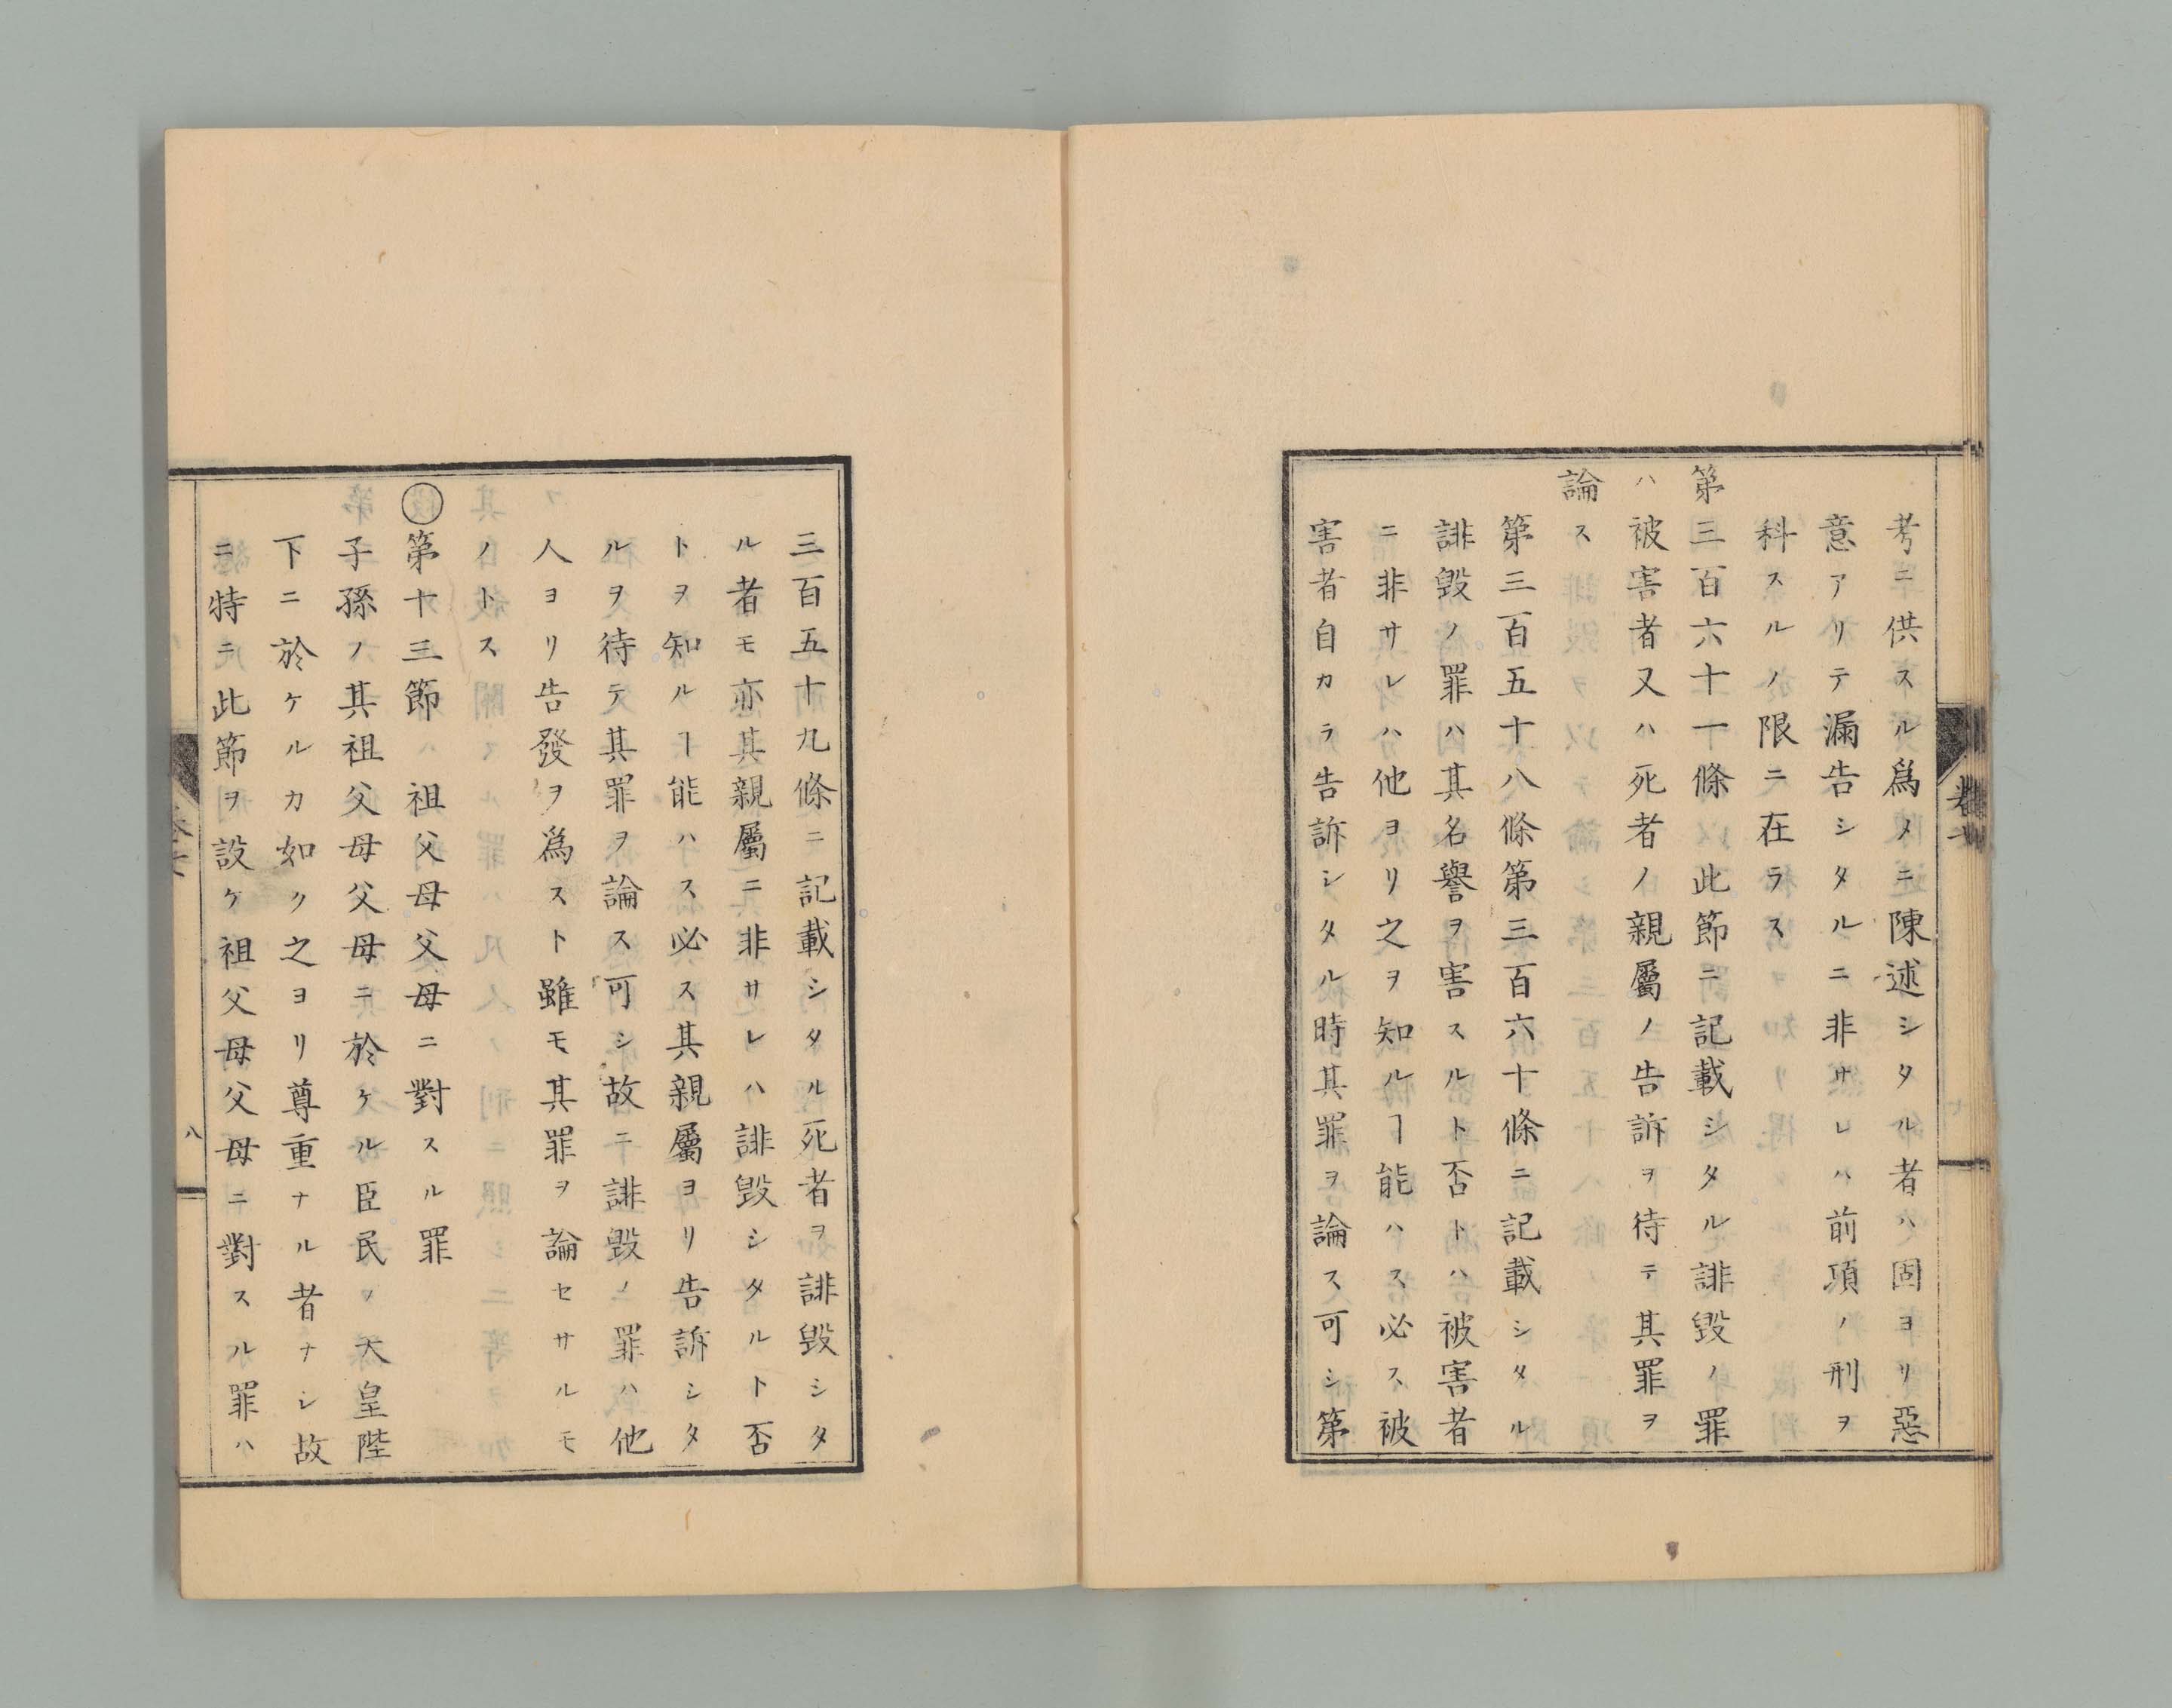 考ニ供スル爲メニ陳述シタル者ハ固ヨリ惡
意アリテ漏告シタルニ非サレハ前項ノ刑ヲ
科スルノ限ニ在ラス
第三百六十一條此節ニ記載シタル誹毀ノ罪
ハ被害者又ハ死者ノ親屬ノ告訴ヲ待テ其罪ヲ
論ス
第三百五十八條第三百六十條ニ記載シタル
誹毀ノ罪ハ其名譽ヲ害スルト否トハ被害者
ニ非サレハ他ヨリ之ヲ知ルヿ能ハス必ス被
害者自カラ告訴シタル時其罪ヲ論ス可シ第
三百五十九條ニ記載シタル死者ヲ誹毀シタ
ル者モ亦其親屬ニ非サレハ誹毀シタルト否
トヲ知ルヿ能ハス必ス其親屬ヨリ告訴シタ
ルヲ待テ其罪ヲ論ス可シ故ニ誹毀ノ罪ハ他
人ヨリ告發ヲ爲スト雖モ其罪ヲ論セサルモ
ノトス
○第十三節　祖父母父母ニ對スル罪
子孫ノ其祖父母父母ニ於ケル臣民ノ　天皇陛
下ニ於ケルカ如ク之ヨリ尊重ナル者ナシ故
ニ特ニ此節ヲ設ケ祖父母父母ニ對スル罪ハ
八